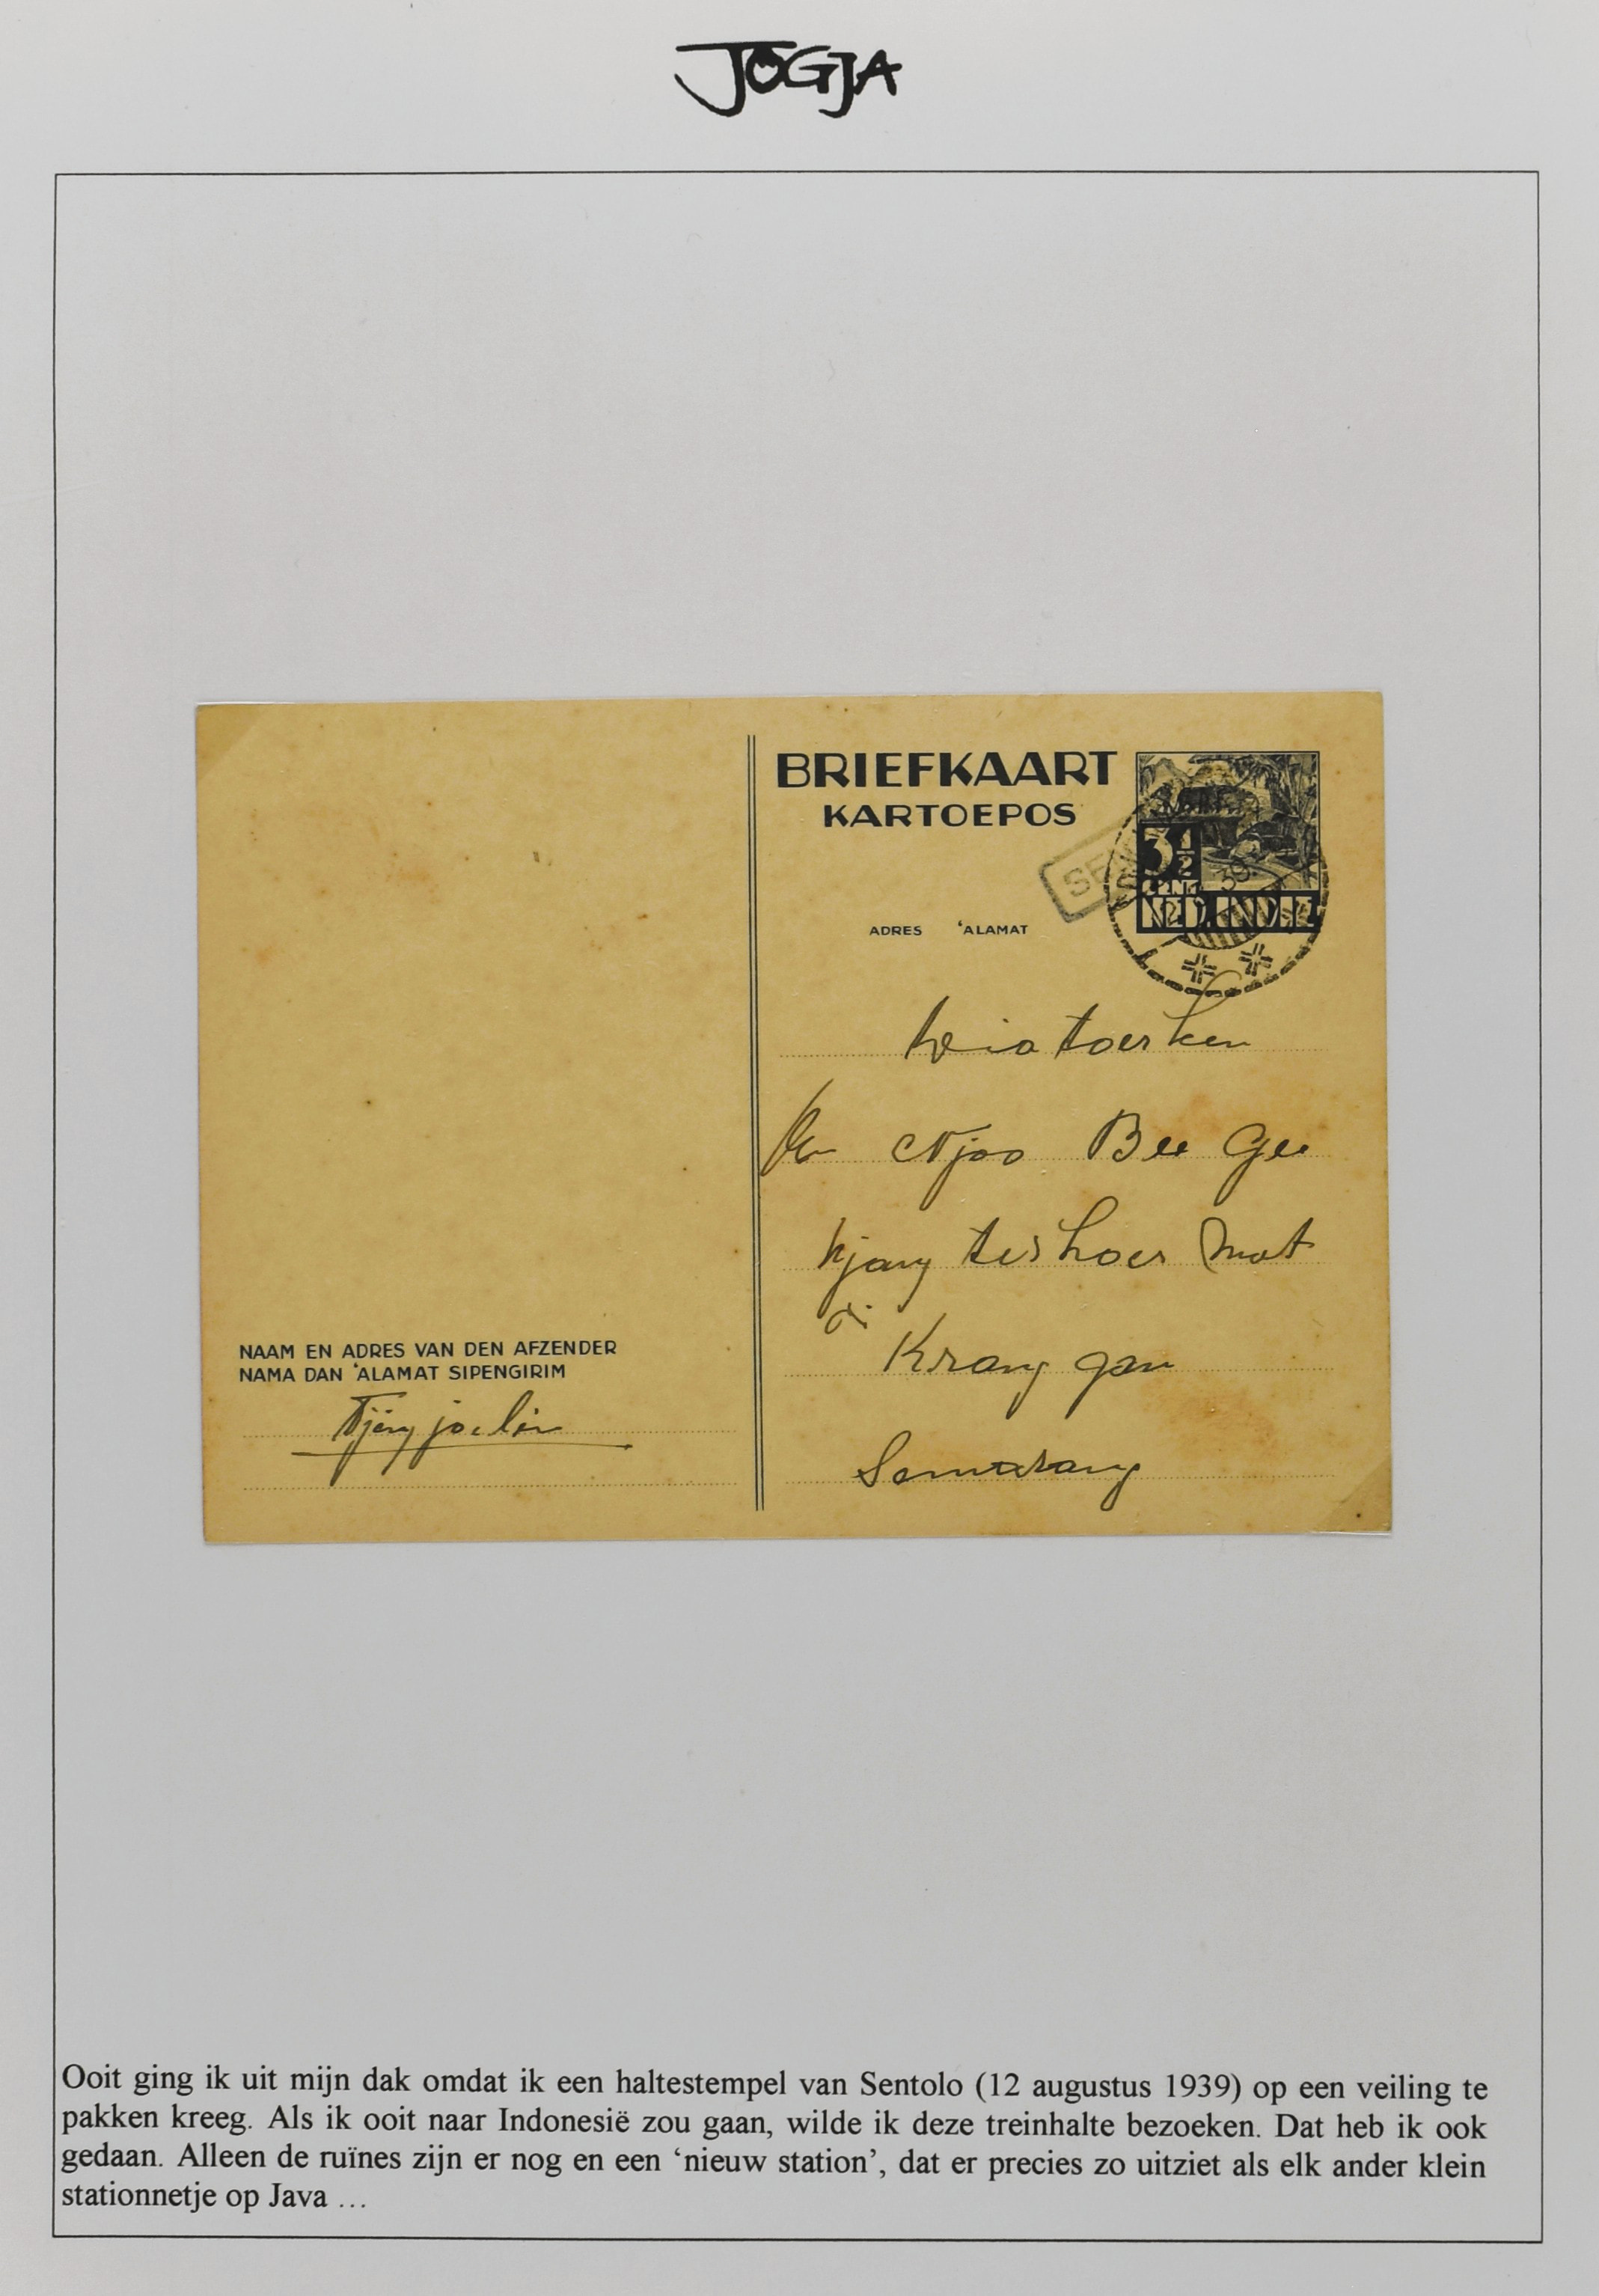 JOGJA
BRIEFKAART
KARTOEPOS
3½
CENT
NED. INDIE
39
ADRES 'ALAMAT
Njoo Bee Gee
di
Krang gan
Semarang
NAAM EN ADRES VAN DEN AFZENDER
NAMA DAN 'ALAMAT SIPENGIRIM
Ooit ging ik uit mijn dak omdat ik een haltestempel van Sentolo (12 augustus 1939) op een veiling te
pakken kreeg. Als ik ooit naar Indonesië zou gaan, wilde ik deze treinhalte bezoeken. Dat heb ik ook
gedaan. Alleen de ruïnes zijn er nog en een ‘nieuw station’, dat er precies zo uitziet als elk ander klein
stationnetje op Java ...